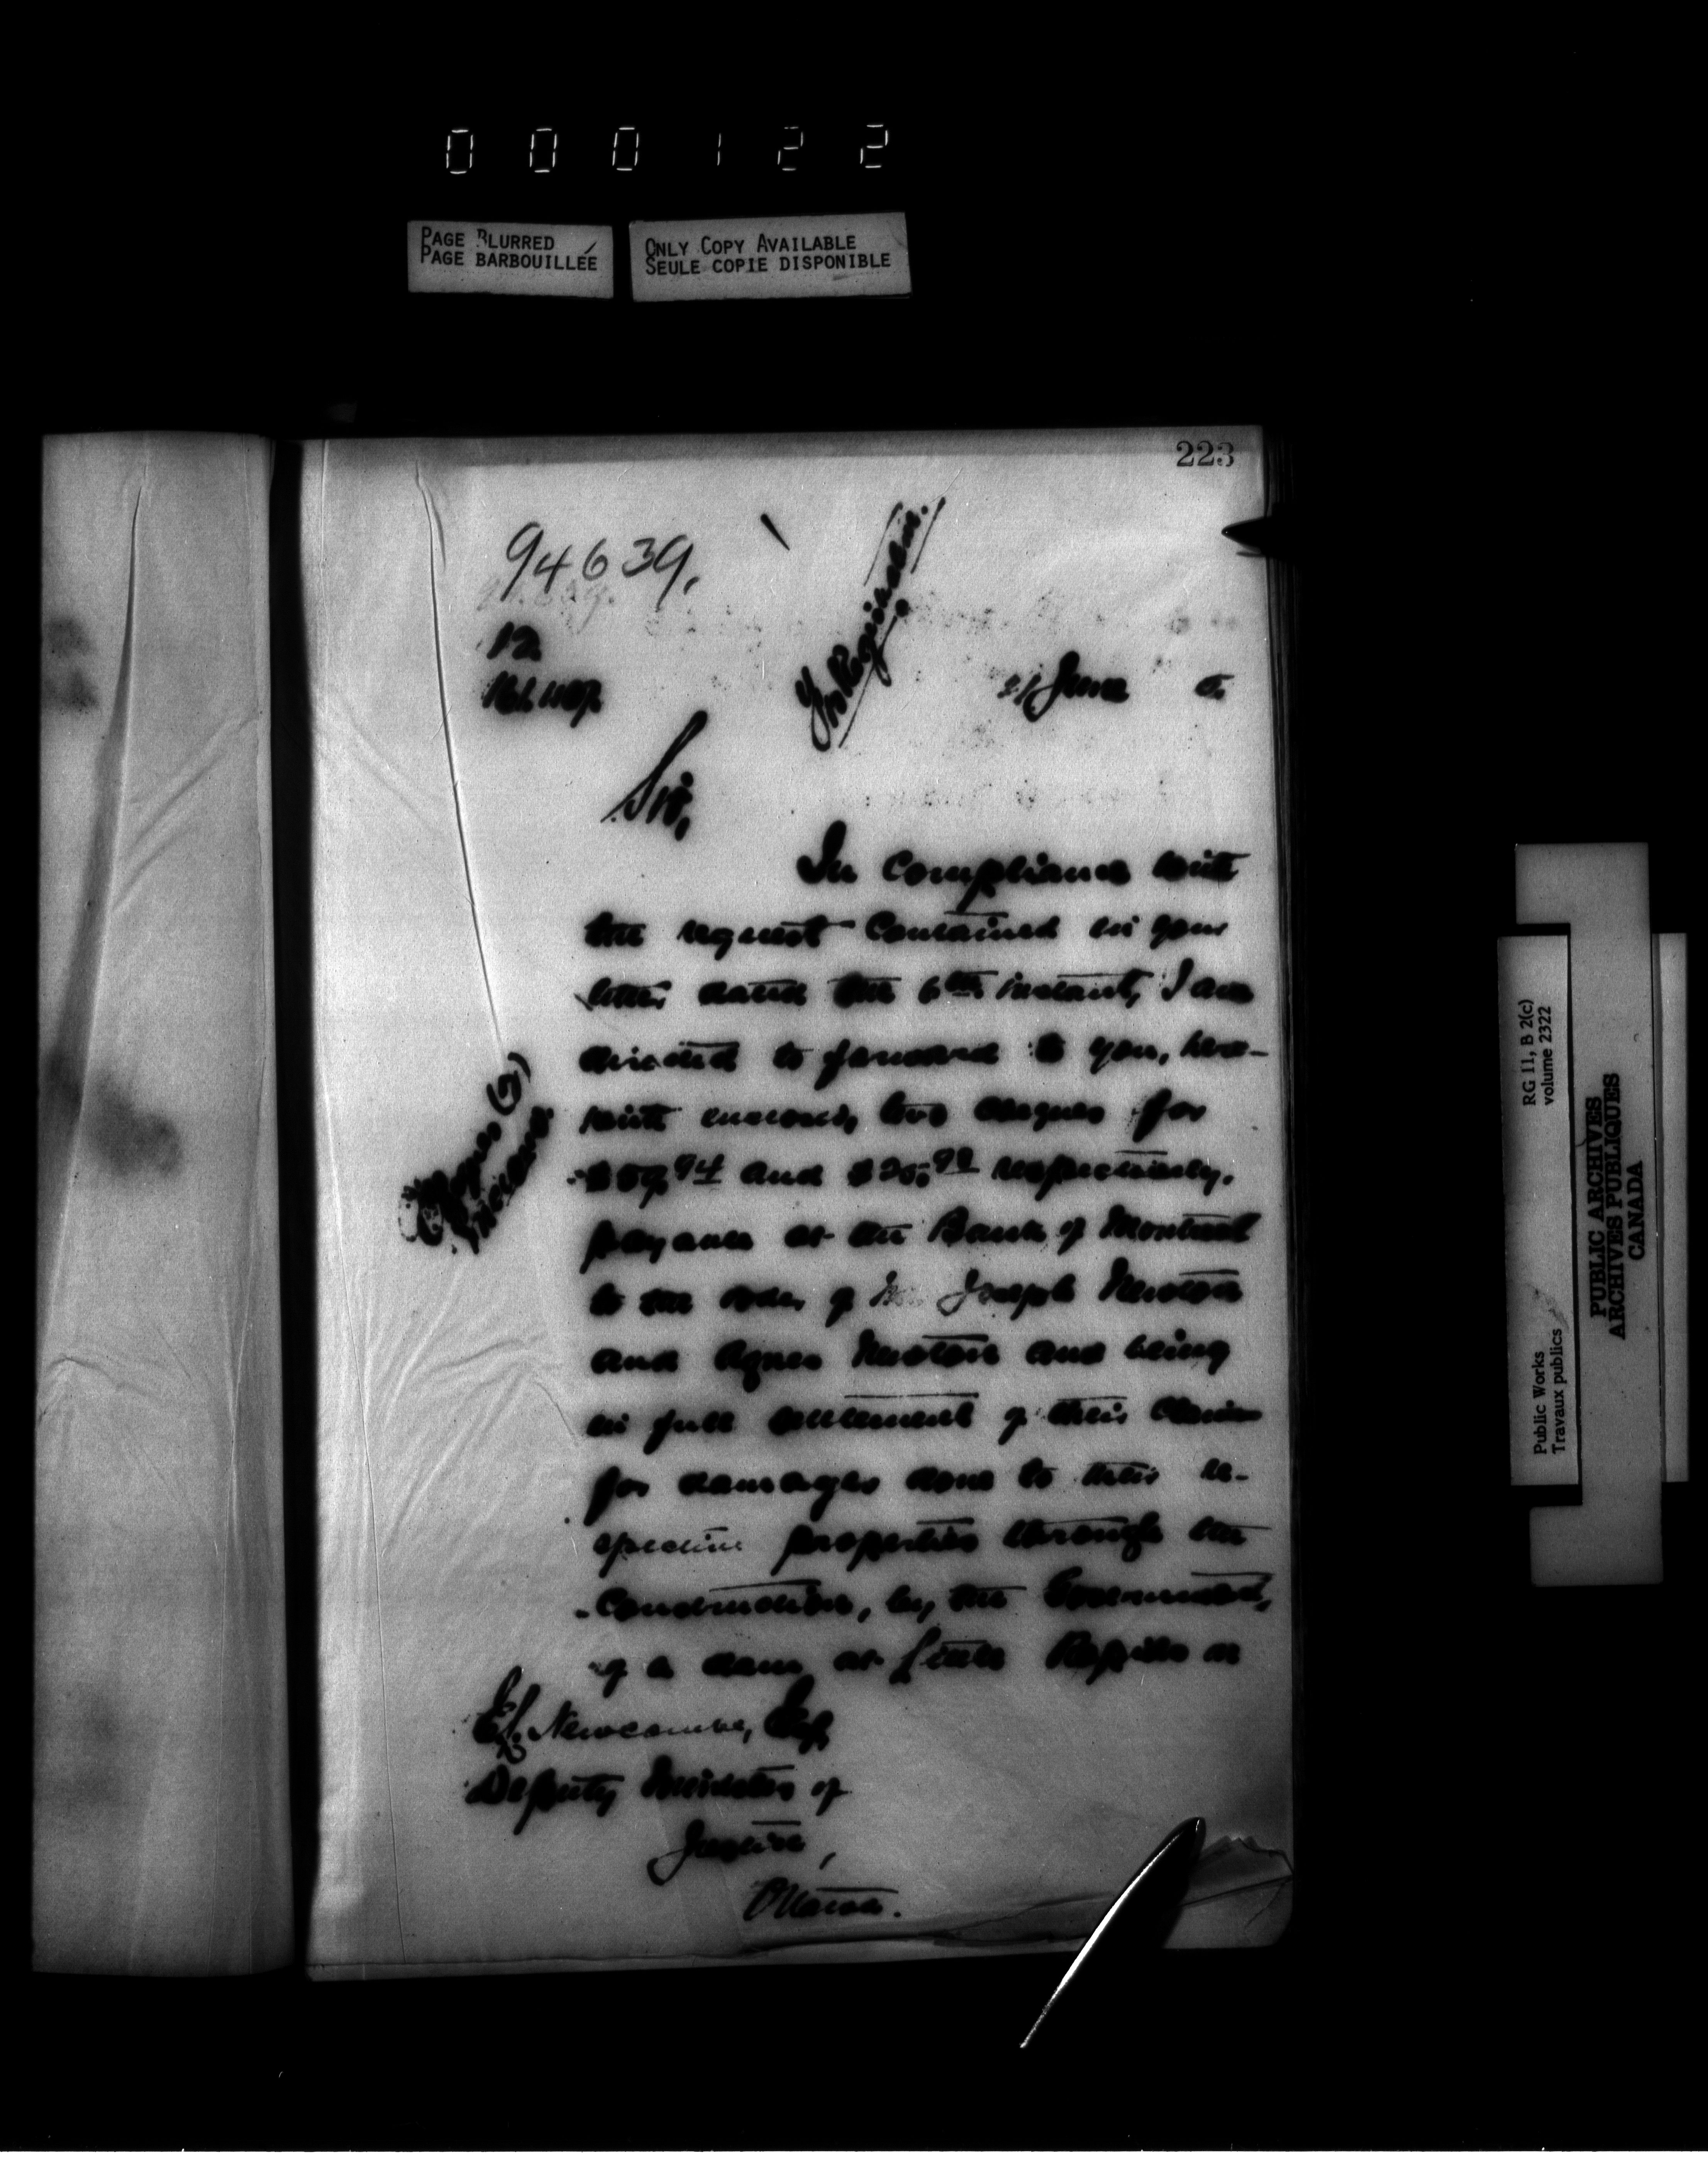 0 0 0 1 2 2
PAGE BLURRED
PAGE BARBOUILLÉE
ONLY COPY AVAILABLE
SEULE COPIE DISPONIBLE
223
94639.
21 June 5.
Sir,
In compliance with
the request contained in your
letter dated the 6th instant, I am
directed to forward to you, here-
with enclosed, two cheques for
and respectively,
payable at the Bank of Montreal
to the order of Joseph Newton
and Agnes Newton and being
in full settlement of their claims
for damages done to their re-
spective properties through the
construction, by the Government,
of a dam at Little Rapids on
Newcombe, Esq
Deputy Minister of
Justice,
Ottawa.
RG 11, B 2(c)
volume 2322
Public Works
Travaux publics
PUBLIC ARCHIVES
ARCHIVES PUBLIQUES
CANADA